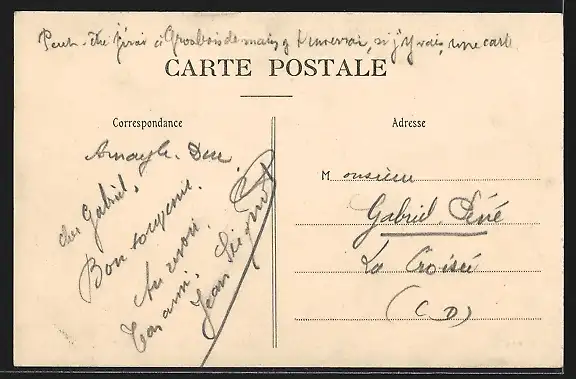 Peut-être j'irai à Grosbois demain, je t'enverrai, si j'y vais, une carte
CARTE POSTALE
Correspondance
Arnay-le-Duc
cher Gabriel,
Bon voyage.
Au revoir.
Ton ami,
Jean
Adresse
Monsieur
Gabriel Péné
La Croisée
(C D)